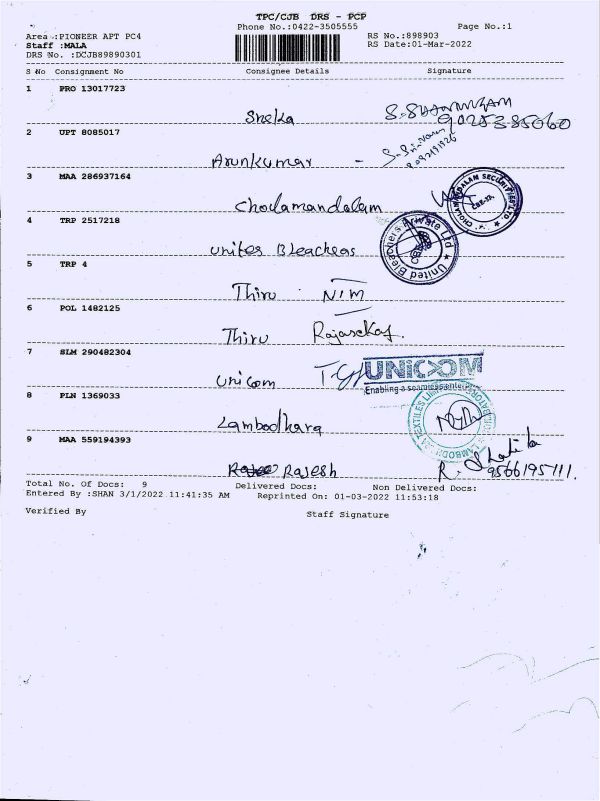 TPC/CJB DRS - PCP
Phone No.:0422-3505555 Page No.:1
Area :PIONEER APT PC4 RS No.:898903
Staff :MALA RS Date:01-Mar-2022
DRS No. :DCJB89890301
S No Consignment No Consignee Details Signature
1 PRO 13017723
Sneka S.SHANMUGAM
9025385060
2 UPT 8085017
Arunkumar -
3 MAA 286937164
Cholamandalam
4 TRP 2517218
United Bleachers
5 TRP 4
Thiru NIM
6 POL 1482125
Thiru Rajasekar.
7 SLM 290482304
Unicom UNICOM
Enabling a seamless enter
8 PLN 1369033
Lambodhara
9 MAA 559194393
Rajesh R.
9566195111.
Total No. Of Docs: 9 Delivered Docs: Non Delivered Docs:
Entered By :SHAN 3/1/2022 11:41:35 AM Reprinted On: 01-03-2022 11:53:18
Verified By Staff Signature